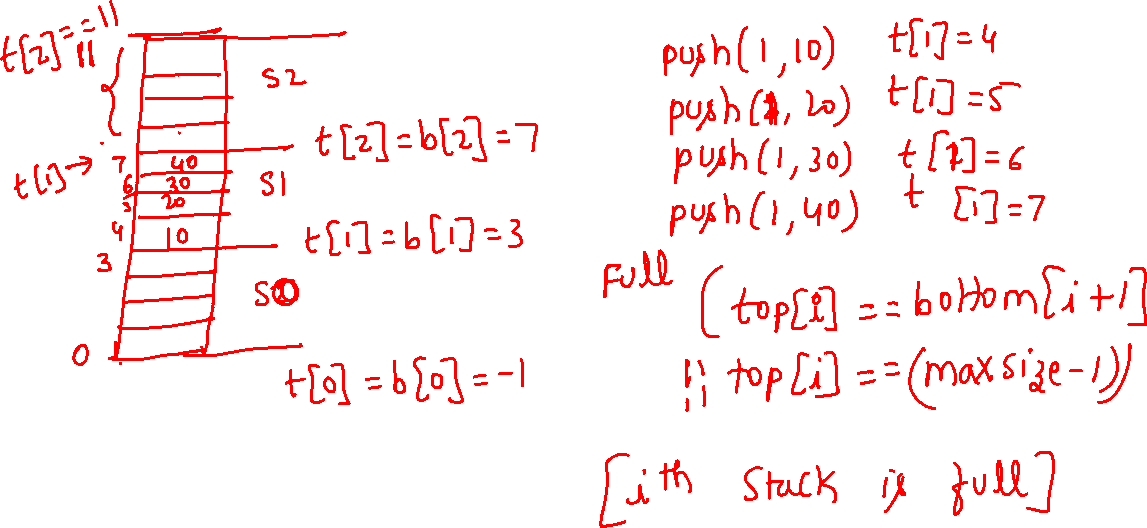 t[2]==11
11
S2
t[2]=b[2]=7
t[1]→
7 40
6 30
5 20
S1
4 10
t[1]=b[1]=3
3
S0
0
t[0]=b[0]=-1
push(1,10) t[1]=4
push(1,20) t[1]=5
push(1,30) t[1]=6
push(1,40) t[1]=7
Full
(top[i]==bottom[i+1]
|| top[i]==(maxsize-1))
[ith Stack is full]